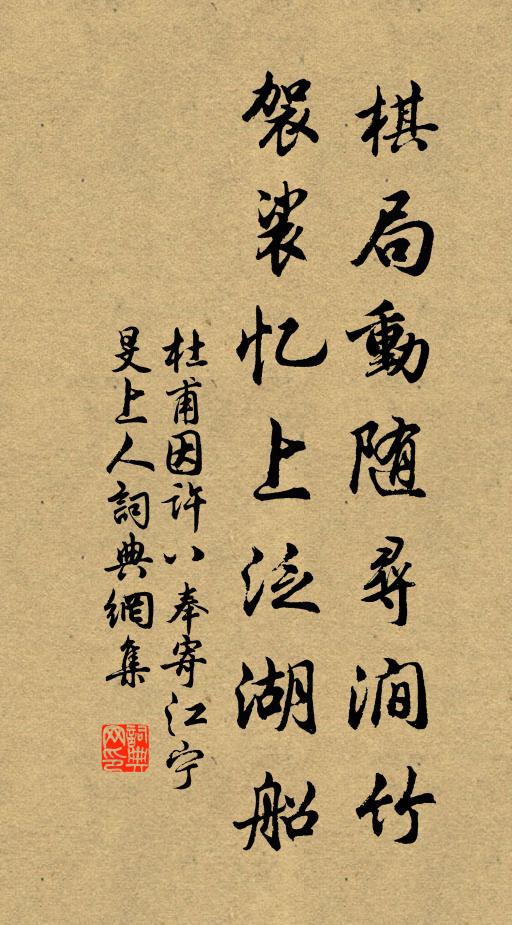 棋局動随尋澗竹
袈裟忆上泛湖船
杜甫因許八奉寄江宁
旻上人詞典網集
詞典
网印